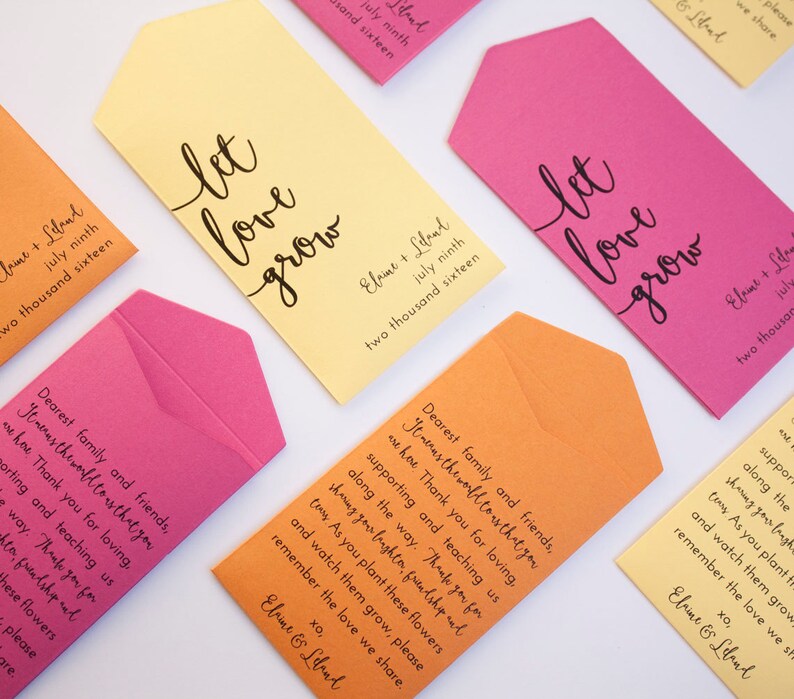 Elaine + Leland
july ninth
two thousand sixteen
please
we share.
Elaine & Leland
Elaine + Leland
july ninth
two thousand sixteen
let
love
grow
Elaine + Leland
july ninth
two thousand sixteen
let
love
grow
Elaine + Leland
july ninth
two thousand
Dearest family and friends,
It means the world to us that you
are here. Thank you for loving,
supporting and teaching us
along the way. Thank you for
sharing your laughter, friendship and
tears. As you plant these flowers
and watch them grow, please
remember the love we share.
xo,
Elaine & Leland
Dearest family and friends,
It means the world to us that you
are here. Thank you for loving,
supporting and teaching us
along the way. Thank you for
friendship and
these flowers
please
share.
are here.
supporting
along the
sharing your laughter
tears. As you plant
and watch them grow,
remember the love we
xo,
Elaine & Leland